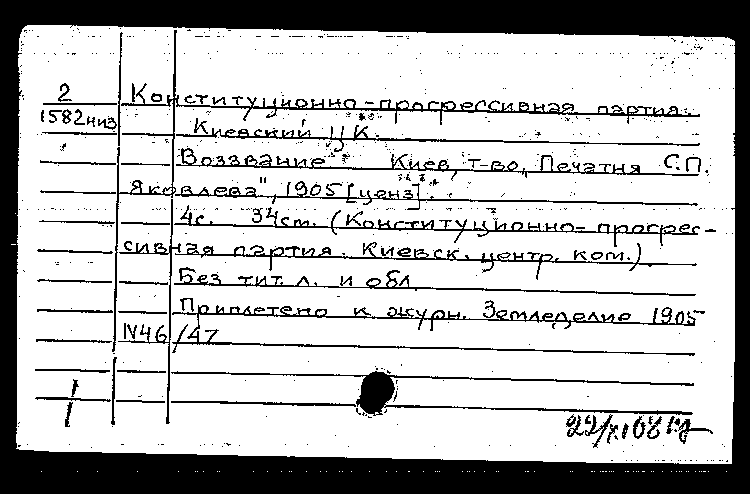 2
1582низ
Конституционно-прогрессивная партия.
Киевский ЦК.
Воззвание Киев, т-во „Печатня С.П.
Яковлева", 1905 [ценз].
4с. 34см. (Конституционно-прогрес-
сивная партия. Киевск. центр. ком.)
Без тит. л. и обл.
Приплетено к журн. Земледелие 1905
N46/47
22/XI 08